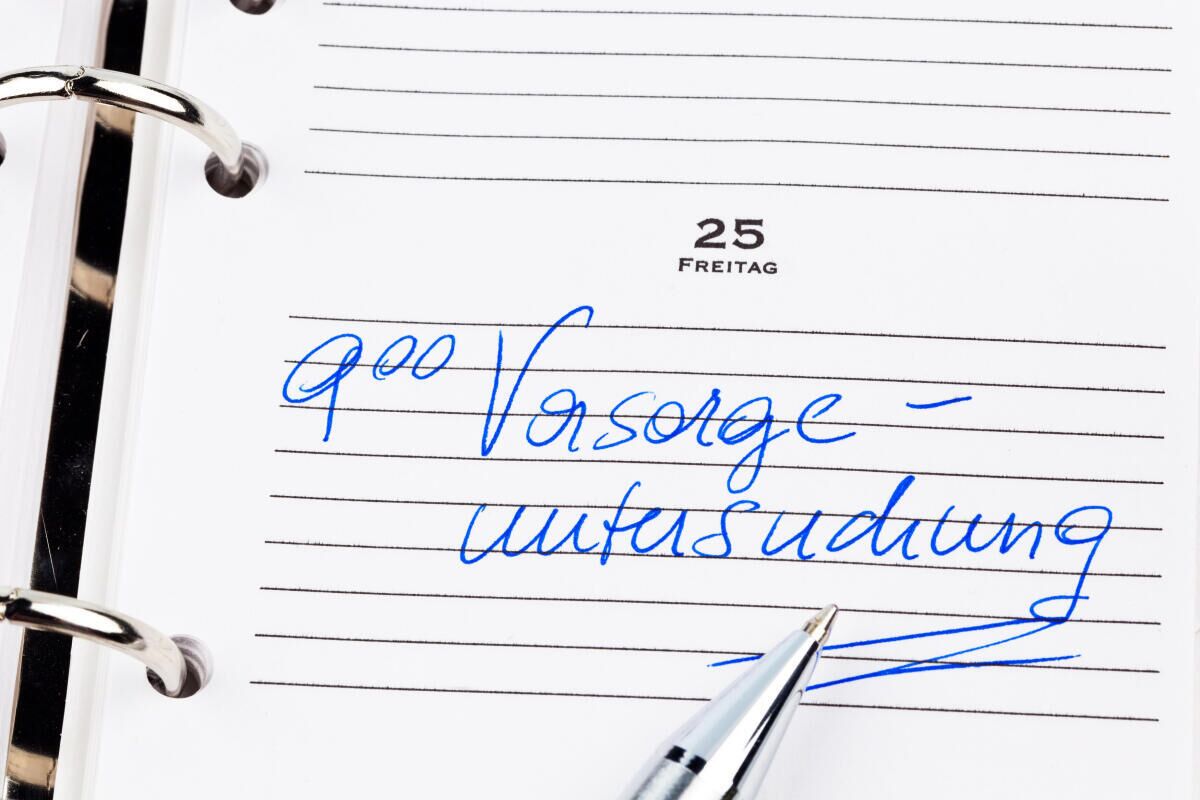 25
FREITAG
9⁰⁰ Vorsorge-
untersuchung